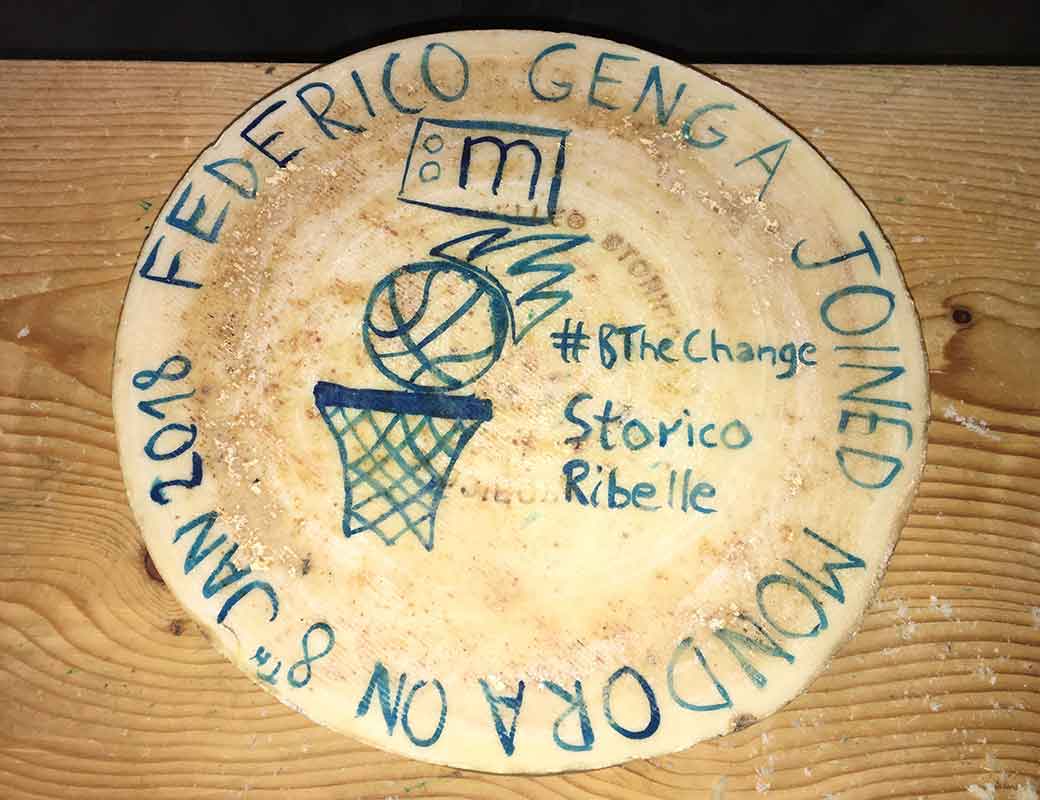 FEDERICO GENGA JOINED MONDORA ON 8TH JAN 2018
m
#BTheChange
Storico
Ribelle